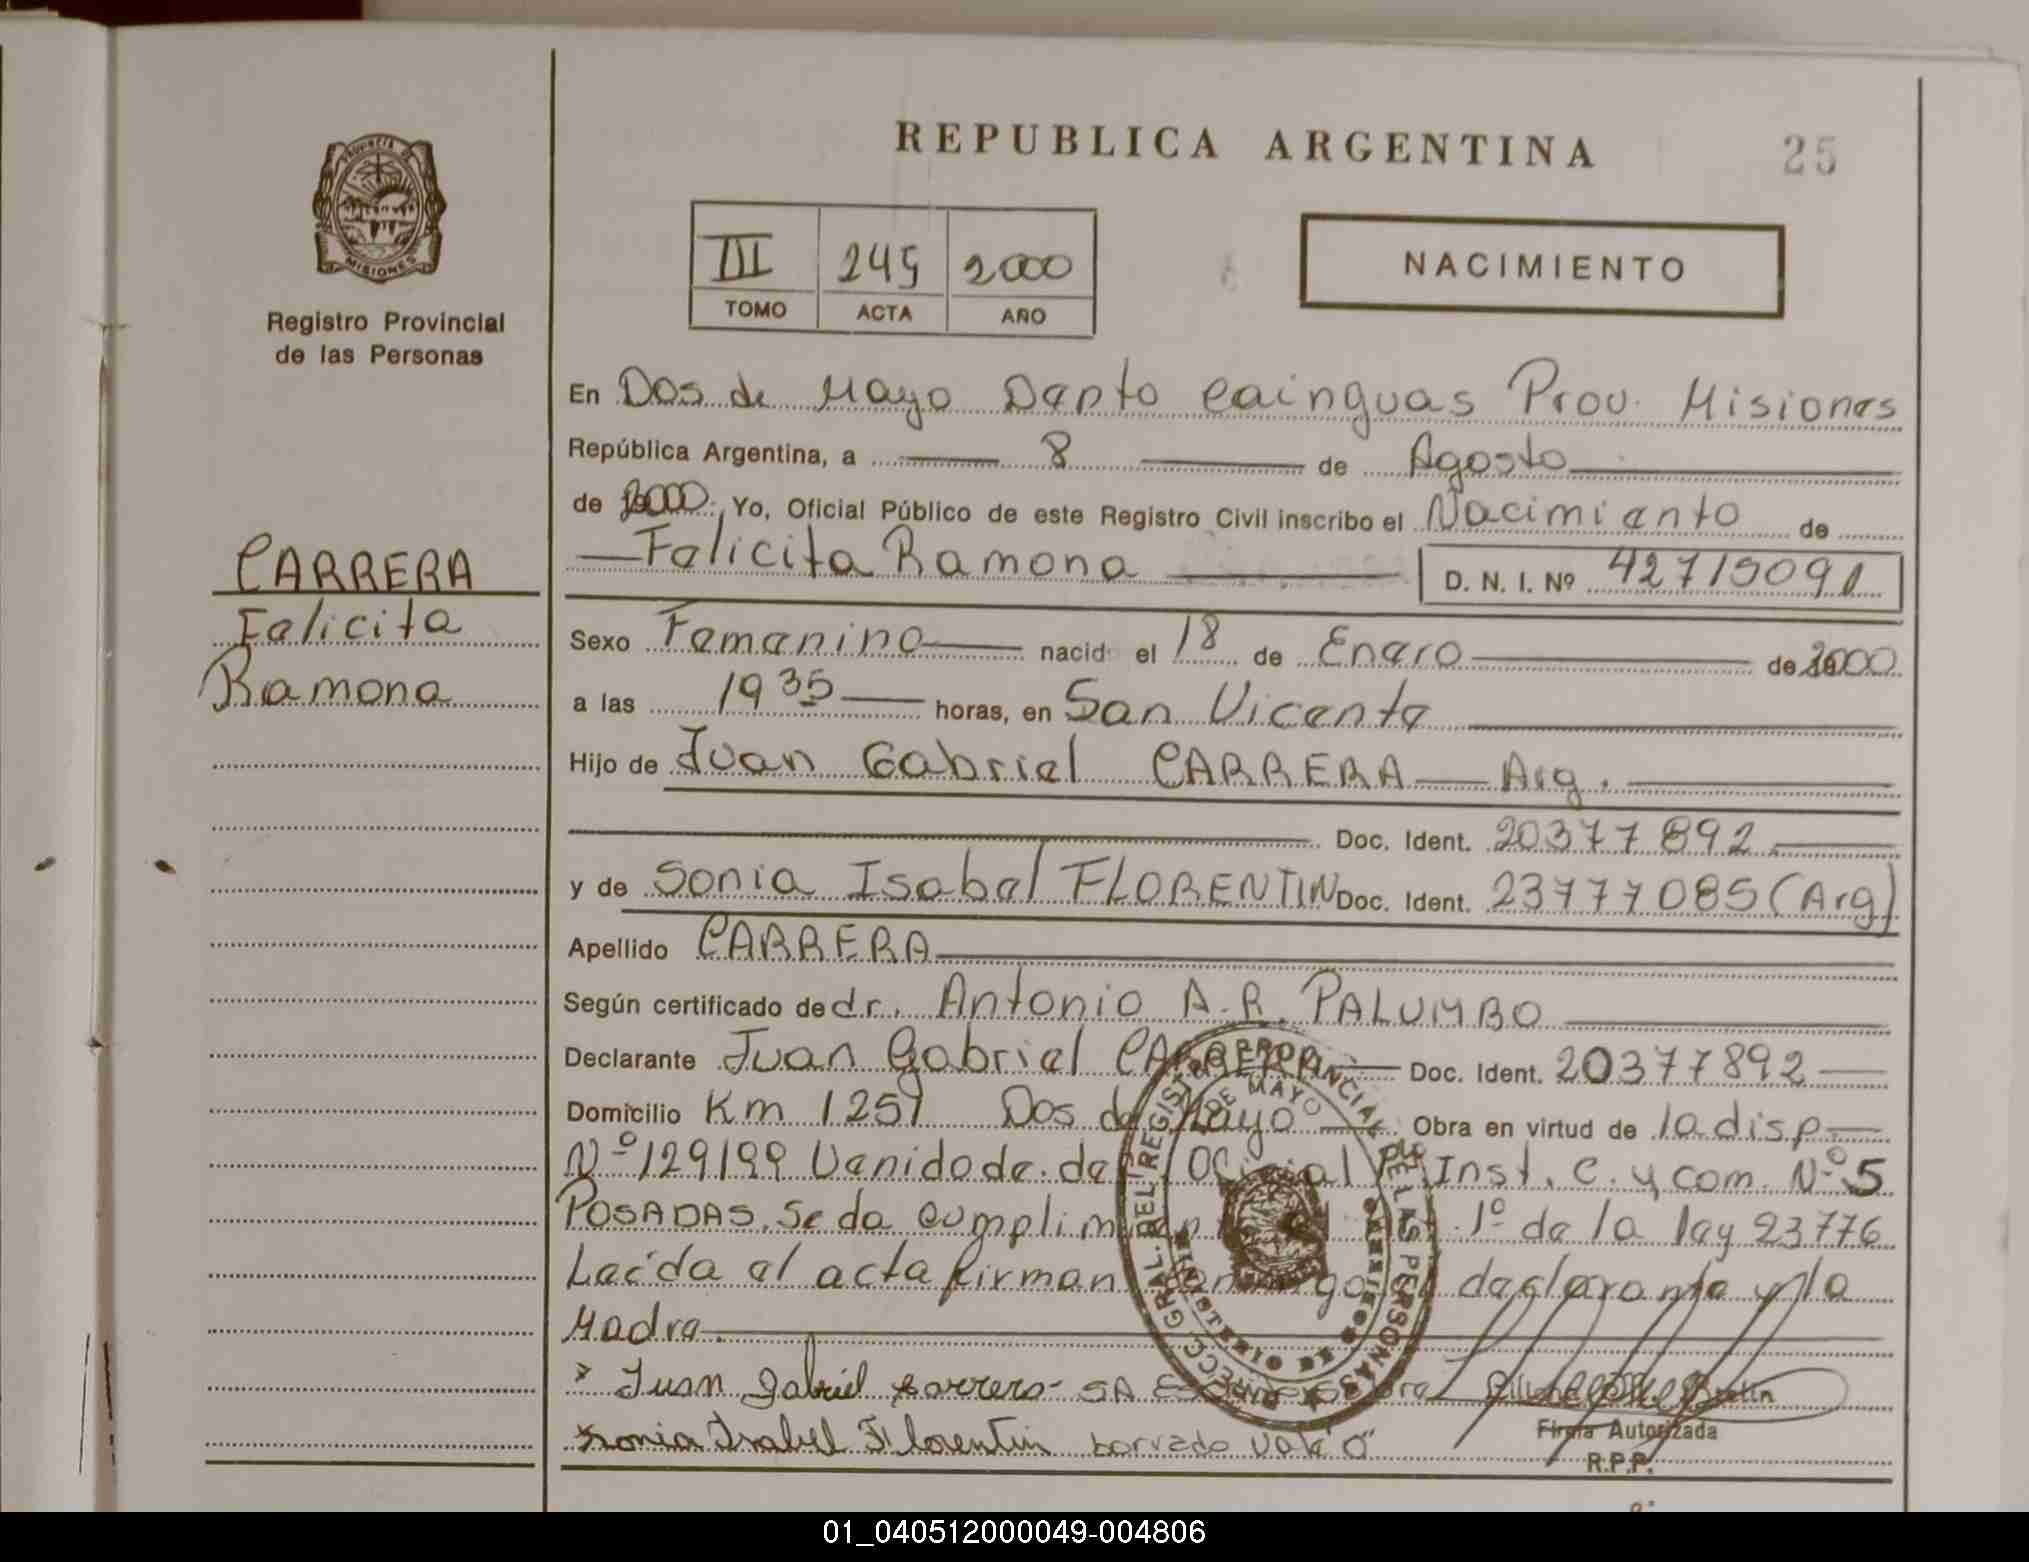 REPUBLICA ARGENTINA
25
PROVINCIA DE
MISIONES
Registro Provincial
de las Personas
III 245 2000
TOMO ACTA AÑO
NACIMIENTO
CARRERA
Felicita
Ramona
En Dos de Mayo Depto Cainguas Prov. Misiones
República Argentina, a 8 de Agosto
de 2000. Yo, Oficial Público de este Registro Civil inscribo el Nacimiento de
Felicita Ramona D. N. I. Nº 42715091
Sexo Femenino nacid el 18 de Enero de 2000
a las 19 35 horas, en San Vicente
Hijo de Juan Gabriel CARRERA Arg.
Doc. Ident. 20377892
y de Sonia Isabel FLORENTIN Doc. Ident. 23777085 (Arg)
Apellido CARRERA
Según certificado de dr. Antonio A. R. PALUMBO
Declarante Juan Gabriel CARRERA Doc. Ident. 20377892
Domicilio Km 1251 Dos de Mayo Obra en virtud de la disp
Nº 129199 Venido de. de Inst. C. y com. Nº 5
POSADAS. Se da 1º de la ley 23776
Leída el acta firman declarante y la
Madre.
x Juan Gabriel Carrera
Sonia Isabel Florentin borrado vale
Firma Autorizada
R.P.P.
DIRECC. GRAL. DEL REGISTRO PROVINCIAL DE LAS PERSONAS
DE MAYO
MISIONES
01_040512000049-004806